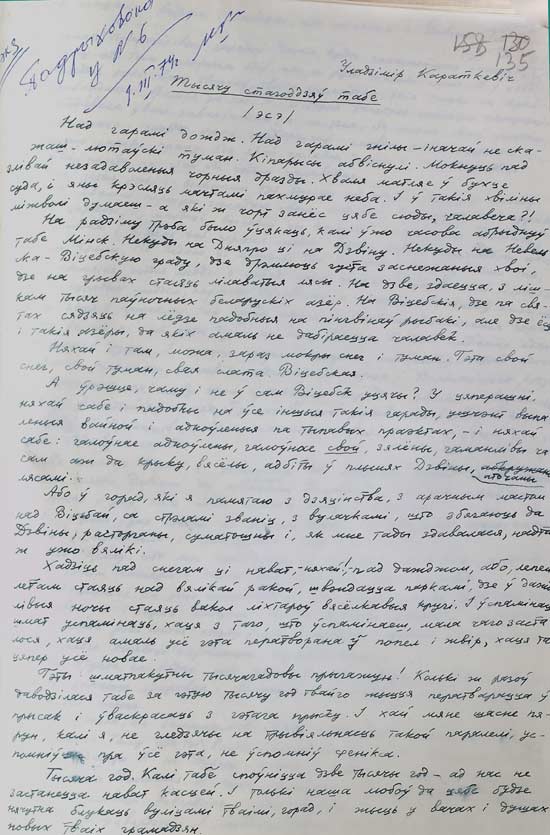 Падрыхована
у N 6
9.III.74г
130
135
Уладзімір Караткевіч
Тысячу стагоддзяў табе
/эсэ/
Над гарамі дождж. Над гарамі гнілы - іначай не ска-
жаш - лютаўскі туман. Кіпарысы абвіснулі. Мокнуць пад
злівай незадаволеныя чорныя дразды. Хваля матляе ў бухце
суда, і яны крэсляць мачтамі пахмурае неба. І ў такія хвіліны
міжволі думаеш - а які ж чорт занёс цябе сюды, чалавеча?!
На радзіму трэба было ўцякаць, калі ўжо часова абрыднуў
табе Мінск. Некуды на Дняпро ці на Дзвіну. Некуды на Невель-
ска-Віцебскую граду, дзе дрэмлюць густа заснежаныя хвоі,
дзе на грывах стаяць ільаватыя лясы. На дзве, здаецца, з ліш-
кам тысяч паўночных беларускіх азёр. На Віцебскія, дзе па свя-
тах сядзяць на лёдзе падобныя на пінгвінаў рыбакі, але дзе ёсц
і такія азёры, да якіх амаль не дабіраецца чалавек.
Няхай і там, можа, зараз мокры снег і туман. Гэта свой
снег, свой туман, свая слата Віцебская.
А ўрэшце, чаму і не ў сам Віцебск уцячы? У цяперашні,
няхай сабе і падобны на ўсе іншыя такія гарады, ушчэнт выпа-
леныя вайной і адноўленыя па тыпавых праектах, - і няхай
сабе: галоўнае адноўлены, галоўнае свой, зялёны, гаманлівы ча
сам аж да крыку, вясёлы, адбіты ў плынях Дзвіны, абкружаны
аточаны
лясамі.
Або ў горад, які я памятаю з дзяцінства, з арачным мостам
над Віцьбай, са стрэламі званіц, з вулачкамі, што збягаюць да
Дзвіны, растарганы, сумятошны і, як мне тады здавалася, надта
ж ужо вялікі.
Хадзіць пад снегам ці нават, - няхай! - пад дажджом, або, лепей
летам стаяць над вялікай ракой, швэндацца паркамі, дзе ў дажд
лівыя ночы стаяць вакол ліхтароў вясёлкавыя кругі. І ўспамінац
шмат успамінаць, хаця з таго, што ўспамінаеш, мала чаго заста
лося, хаця амаль усё гэта ператворана ў попел і жвір, хаця та
цяпер усё новае.
Гэты шматпакутны тысячагадовы прыгажун! Колькі ж разоў
даводзілася табе за гэтую тысячу год твайго жыцця ператварацца ў
прысак і ўваскрасаць з гэтага прыску. І хай мяне шасне пя-
рун, калі я, не гледзячы на трывіяльнасць такой паралелі, ус-
помніў пра ўсё гэта, не ўспомніў феніка.
Тысяча год. Калі табе споўніцца дзве тысячы год - ад нас не
застанецца нават касцей. І толькі наша любоў да цябе будзе
нячутна блукаць вуліцамі тваімі, горад, і жыць у вачах і душах
новых тваіх грамадзян.